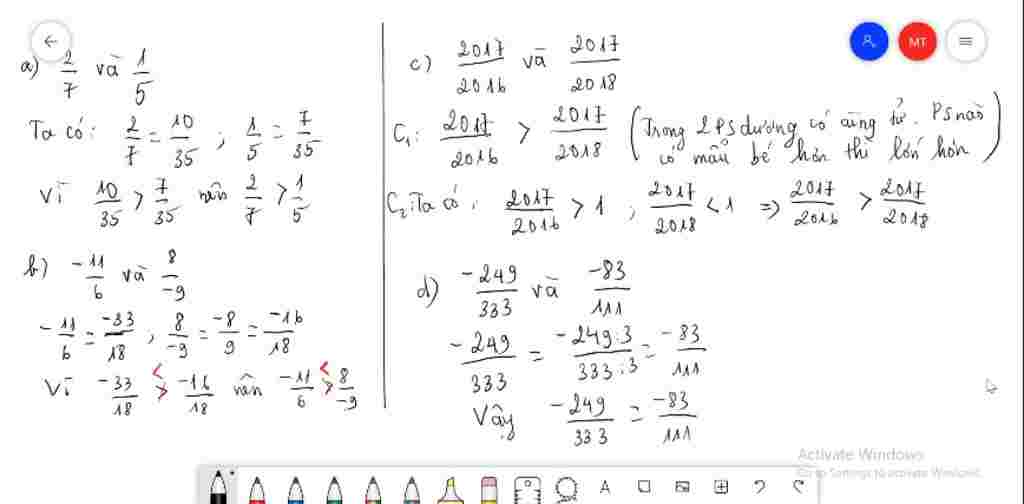 a) 2/7 và 1/5
Ta có: 2/7 = 10/35 ; 1/5 = 7/35
Vì 10/35 > 7/35 nên 2/7 > 1/5
b) -11/6 và 8/-9
-11/6 = -33/18 , 8/-9 = -8/9 = -16/18
Vì -33/18 < > -16/18 nên -11/6 < > 8/-9
c) 2017/2016 và 2017/2018
C1: 2017/2016 > 2017/2018 (Trong 2 PS dương có cùng tử. PS nào
có mẫu bé hơn thì lớn hơn)
C2: Ta có: 2017/2016 > 1 ; 2017/2018 < 1 => 2017/2016 > 2017/2018
d) -249/333 và -83/111
-249/333 = -249:3/333:3 = -83/111
Vậy -249/333 = -83/111
MT
Activate Windows
Go to Settings to activate Windows.
A